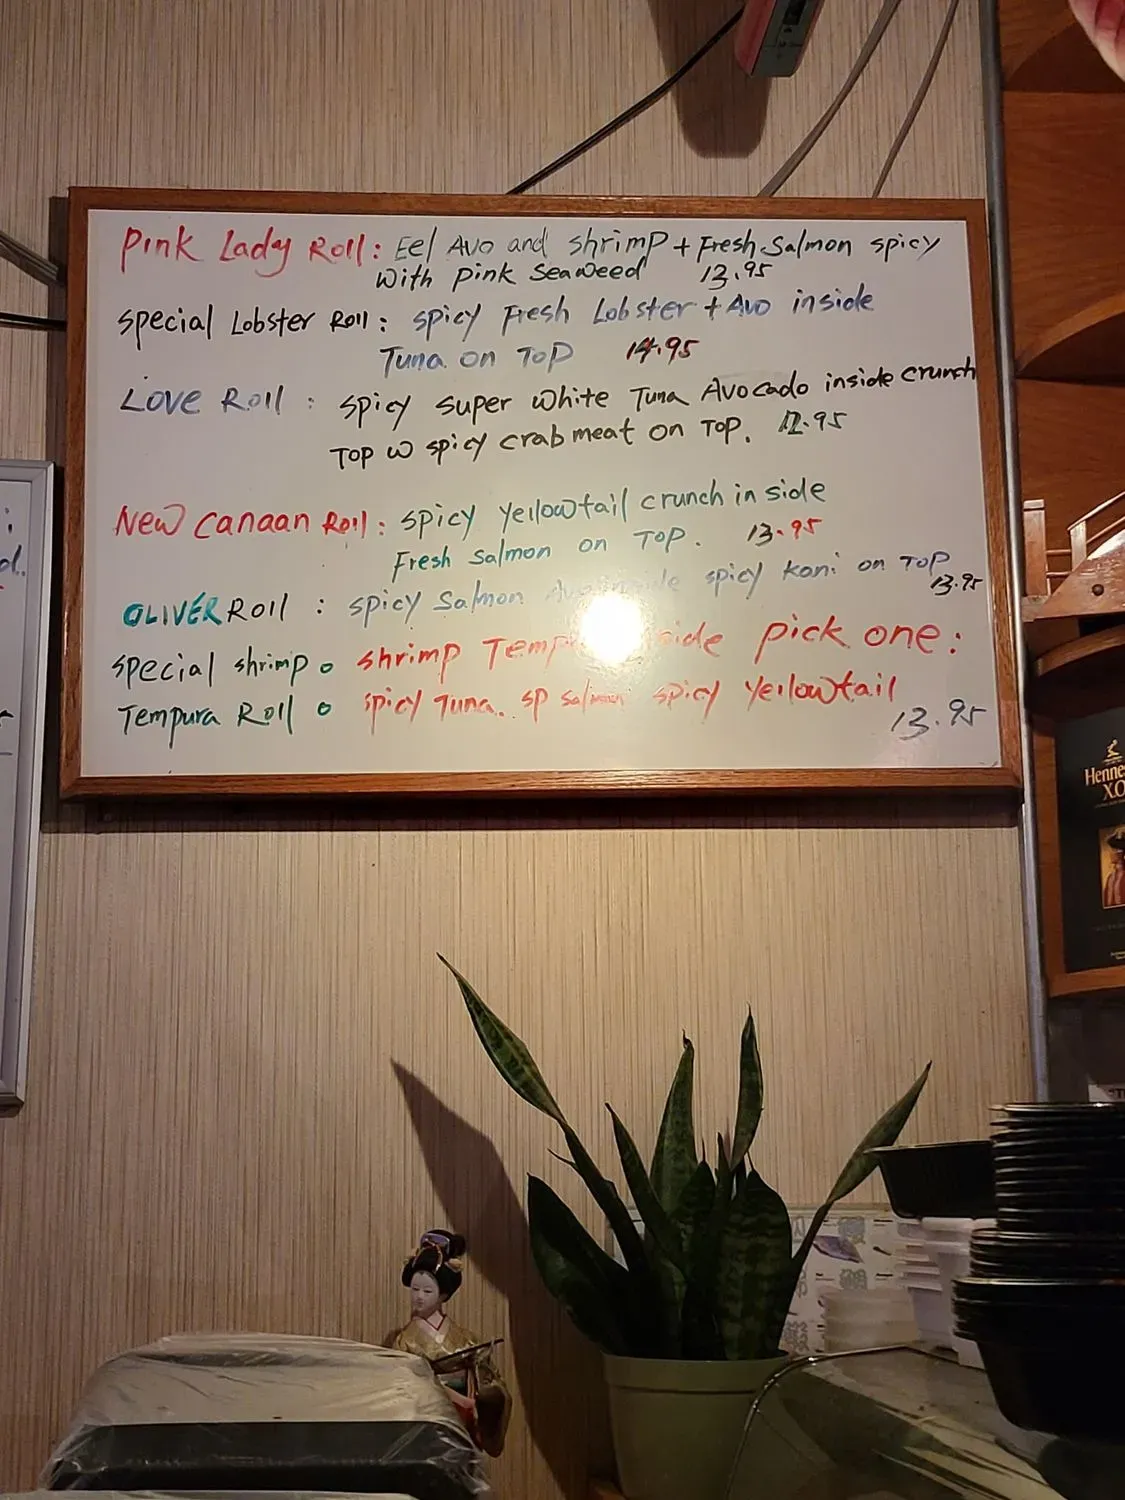 Pink Lady Roll: Eel Avo and shrimp + Fresh Salmon spicy
with pink seaweed 13.95
Special Lobster Roll: spicy Fresh Lobster + Avo inside
Tuna on Top 14.95
Love Roll: spicy super white Tuna Avocado inside crunch
Top w spicy crab meat on Top. 12.95
New Canaan Roll: spicy yellowtail crunch inside
Fresh Salmon on Top. 13.95
OLIVER Roll: spicy Salmon Avo inside spicy Kani on Top
13.95
special shrimp: shrimp Tempura inside pick one:
Tempura Roll: spicy Tuna. sp salmon spicy yellowtail
13.95
d.
Henne
X.O